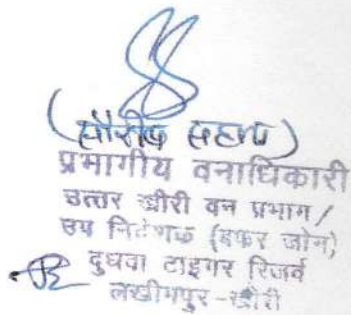 (सौरीष सहाय)
प्रभागीय वनाधिकारी
उत्तर खीरी वन प्रभाग/
उप निदेशक (बफर जोन)
दुधवा टाइगर रिजर्व
लखीमपुर-खीरी